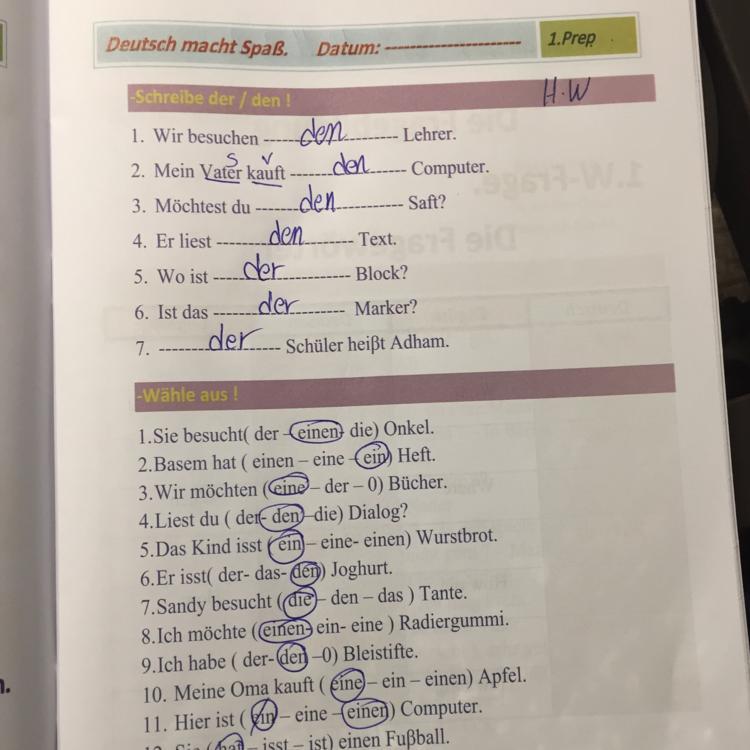 Deutsch macht Spaß. Datum: ---------------------- 1.Prep
-Schreibe der / den ! H.W
1. Wir besuchen ------den---------- Lehrer.
S V
2. Mein Vater kauft -------den------ Computer.
3. Möchtest du -------den------------- Saft?
4. Er liest ---------den---------- Text.
5. Wo ist -----der-------------- Block?
6. Ist das -------der----------- Marker?
7. --------der------- Schüler heißt Adham.
-Wähle aus !
1.Sie besucht( der – einen- die) Onkel.
2.Basem hat ( einen – eine – ein) Heft.
3.Wir möchten (eine – der – 0) Bücher.
4.Liest du ( der- den –die) Dialog?
5.Das Kind isst ( ein – eine- einen) Wurstbrot.
6.Er isst( der- das- den) Joghurt.
7.Sandy besucht ( die – den – das ) Tante.
8.Ich möchte (einen- ein- eine ) Radiergummi.
9.Ich habe ( der- den –0) Bleistifte.
10. Meine Oma kauft ( eine – ein – einen) Apfel.
11. Hier ist ( ein – eine – einen) Computer.
12. Sie ( hat – isst – ist) einen Fußball.
n.